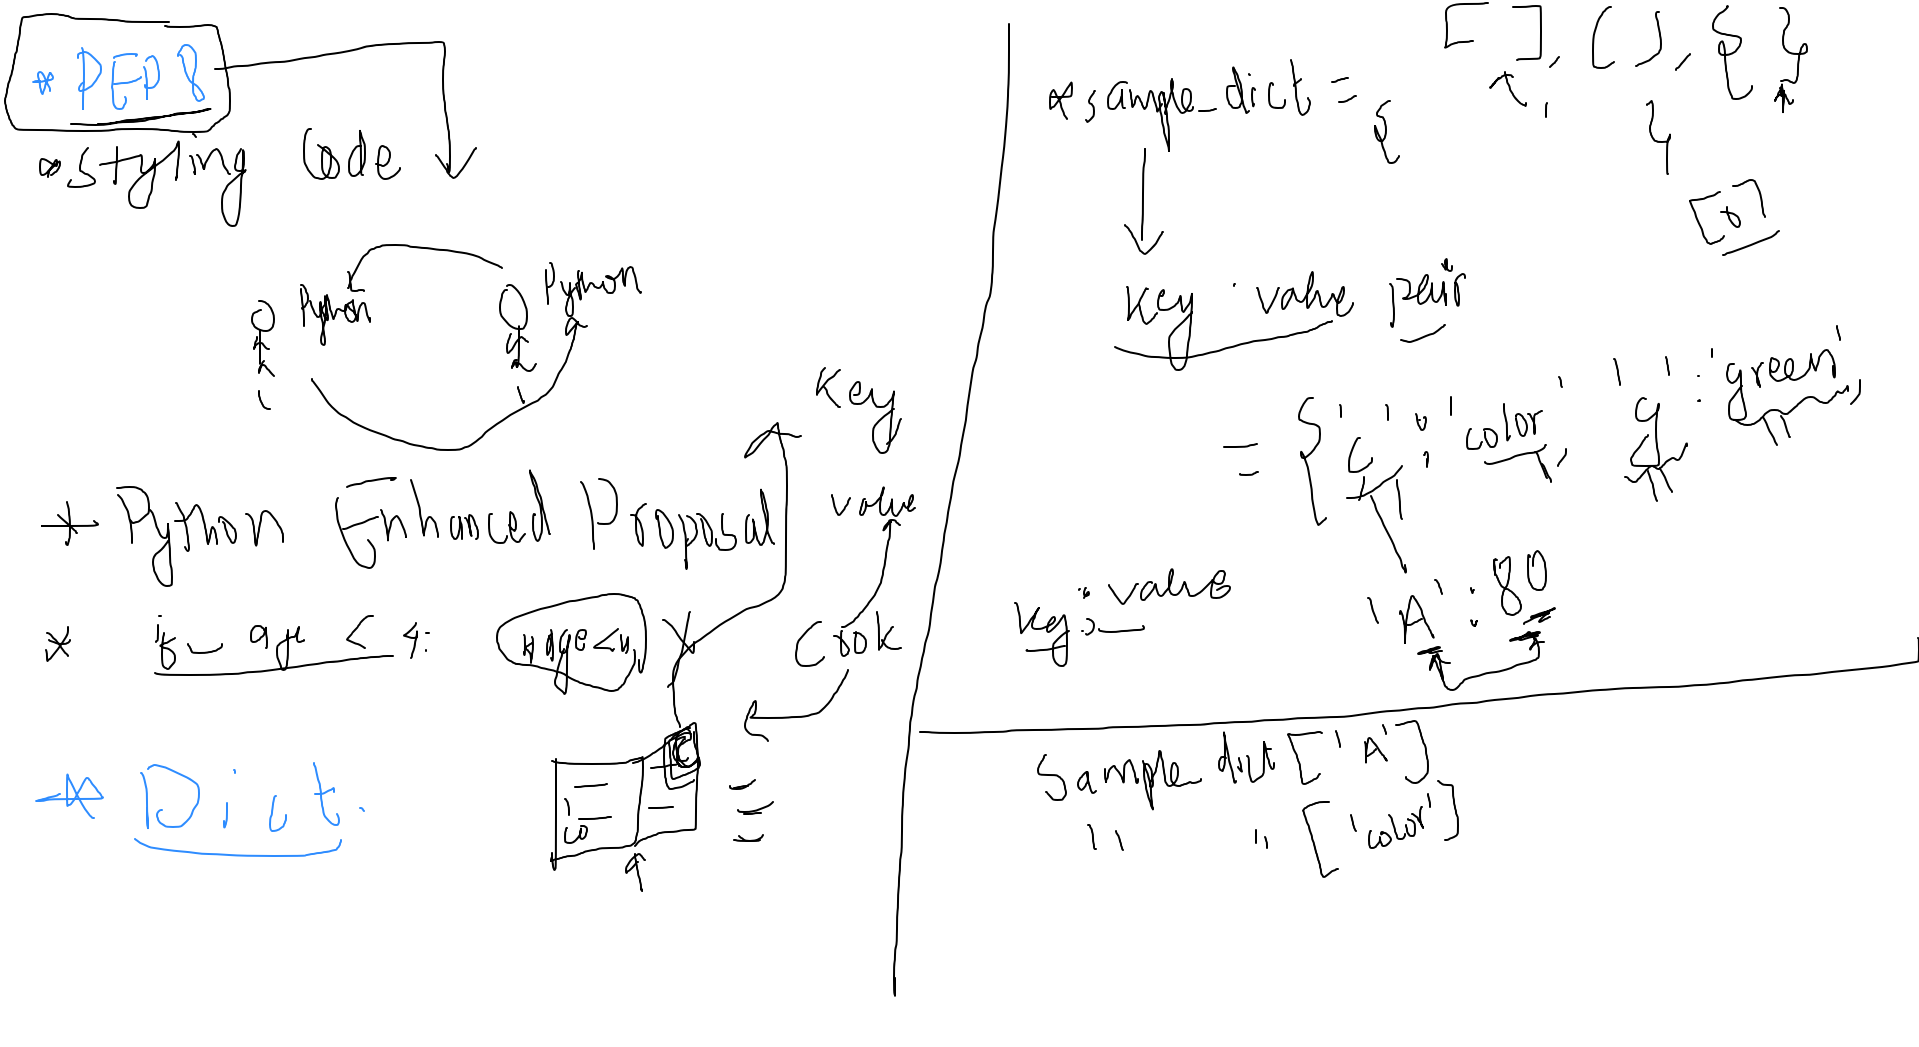 * PEP 8
* styling Code
Python
Python
Key
* Python Enhanced Proposal
value
* if age < 4:
Cook
C
* Dict.
[ ], ( ), { }
* sample_dict = { }
[0]
Key : value pair
= { 'c' : 'color', 'g' : 'green',
'A' : 80
key : value
Sample dict ['A']
" " ['color']